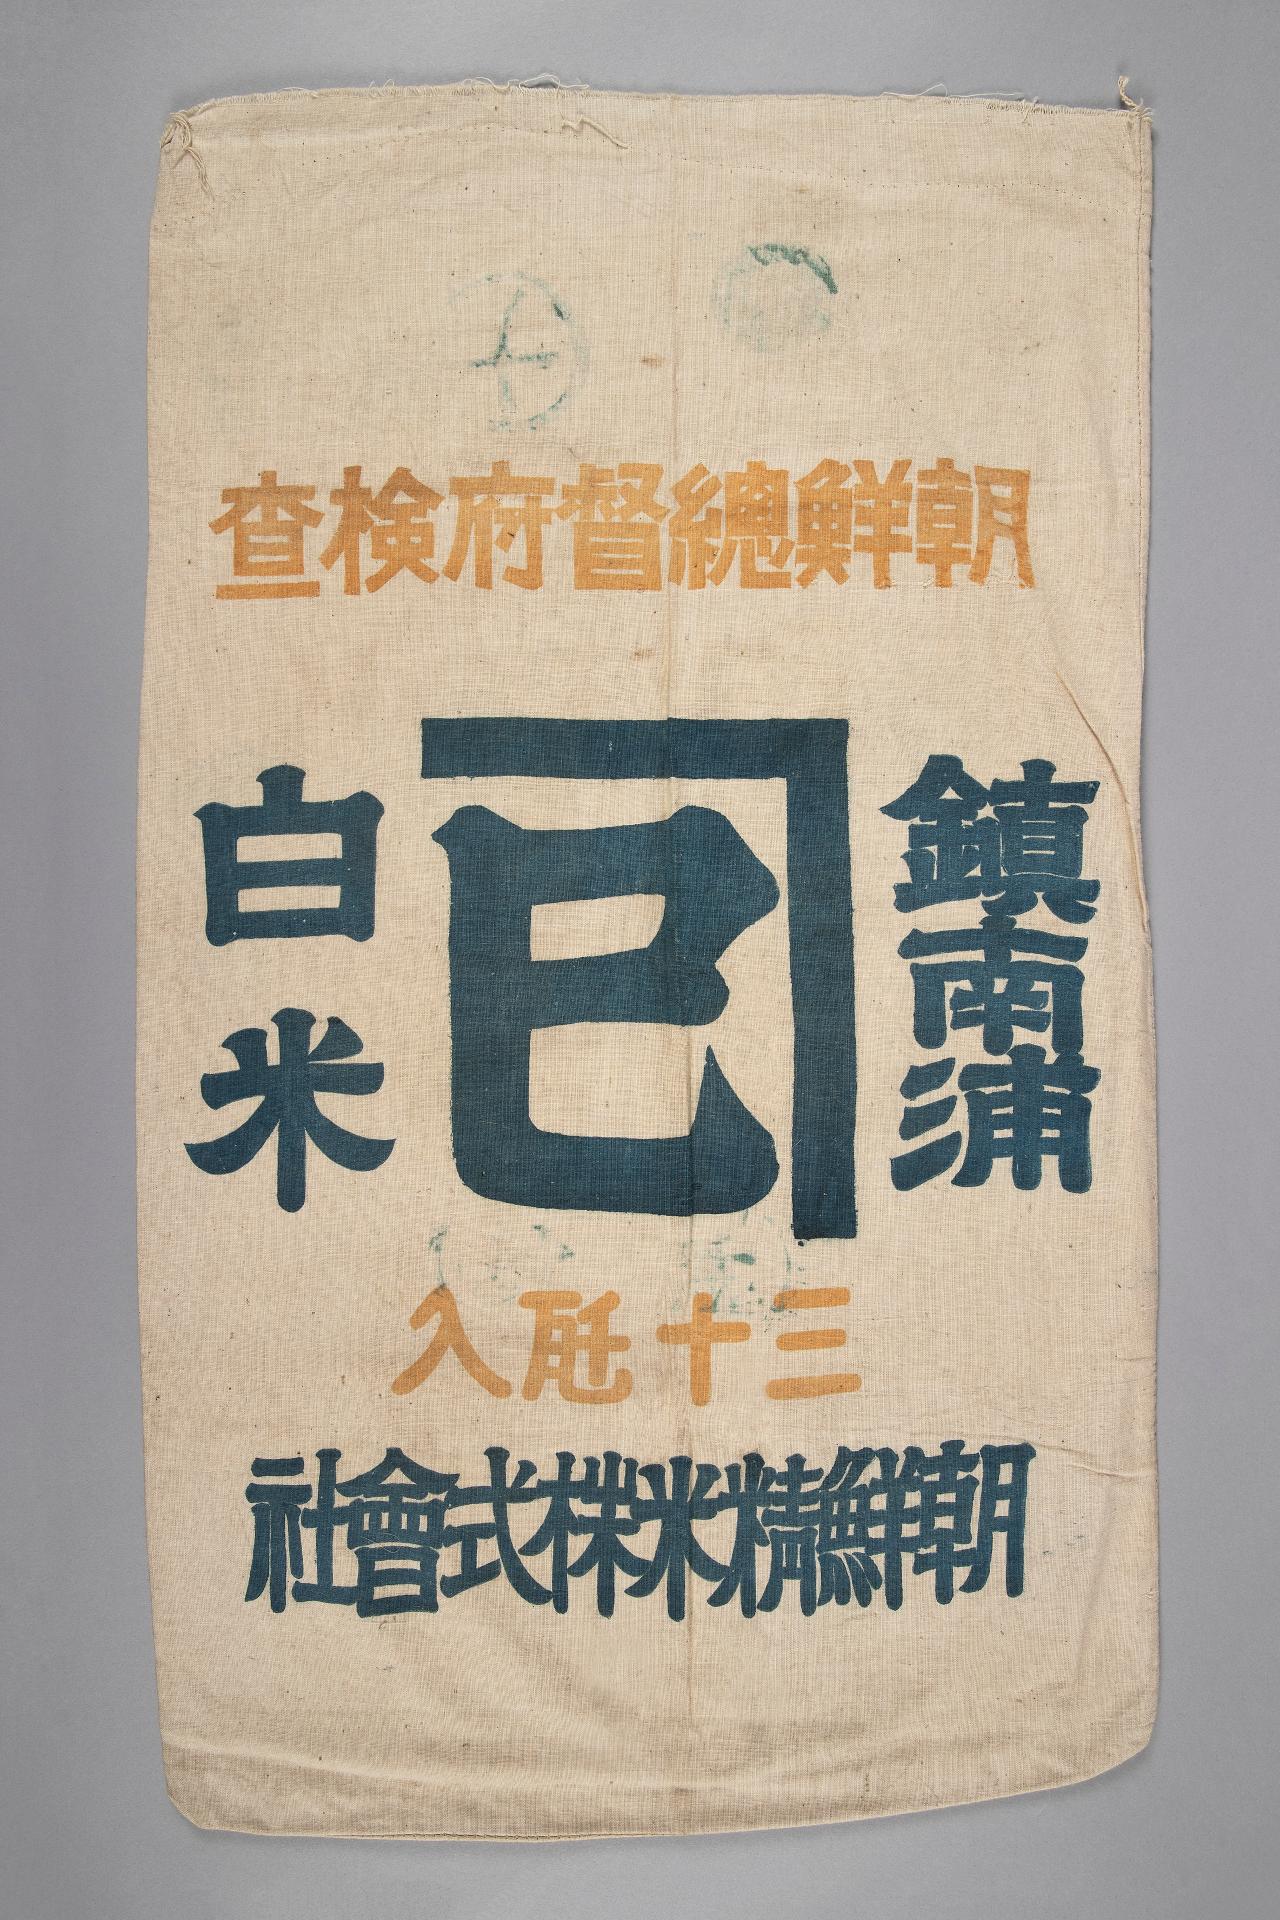 朝鮮總督府検査
鎮南浦
巳
白米
三十瓩入
朝鮮精米株式會社